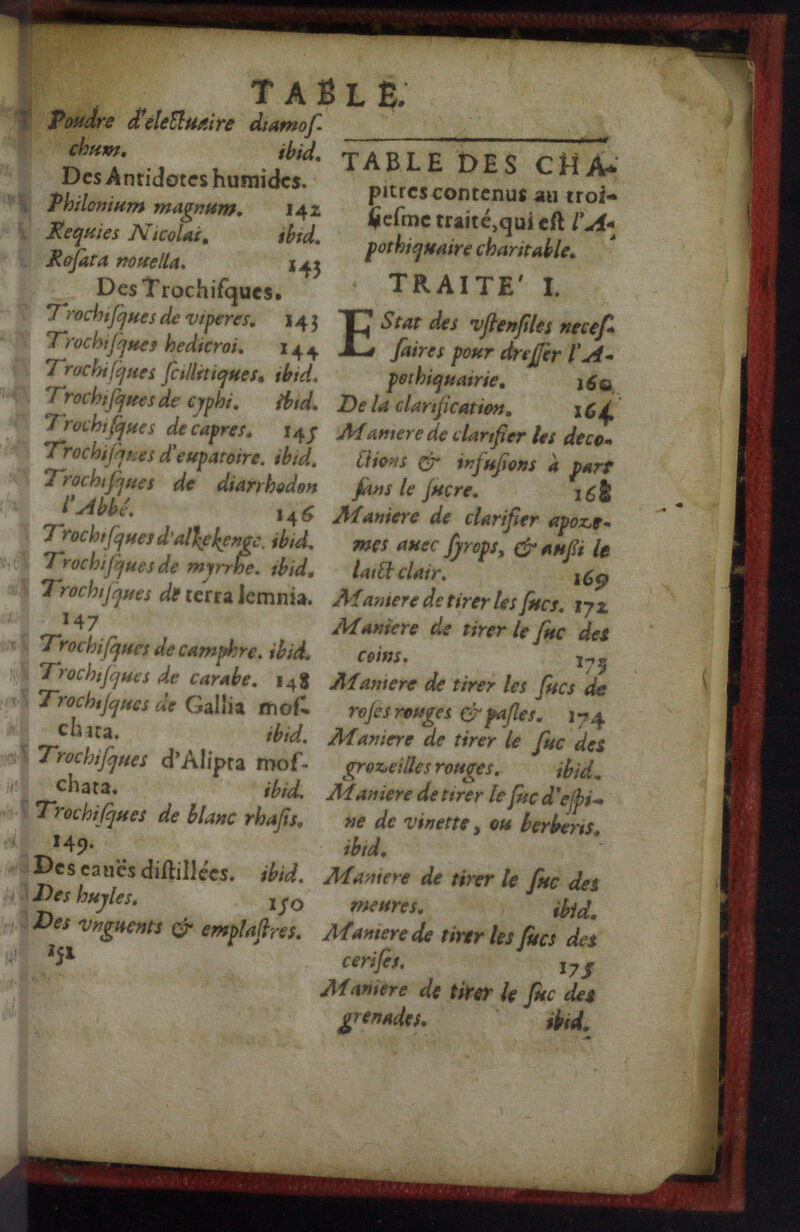 TABLE.
Poudre d'électuaire diamoſ-
chum. ibid.
Des Antidotes humides.
Philonium magnum. 142
Requies Nicolai. ibid.
Roſata nouella. 143
Des Trochiſques.
Trochiſques de viperes. 143
Trochiſques hedicroi. 144
Trochiſques ſcillitiques. ibid.
Trochiſques de cyphi. ibid.
Trochiſques de capres. 145
Trochiſques d'eupatoire. ibid.
Trochiſques de diarrhodon
l'Abbé. 146
Trochiſques d'alkekenge. ibid.
Trochiſques de myrrhe. ibid.
Trochiſques de terra lemnia.
147
Trochiſques de camphre. ibid.
Trochiſques de carabe. 148
Trochiſques de Gallia moſ-
chata. ibid.
Trochiſques d'Alipta moſ-
chata. ibid.
Trochiſques de blanc rhaſis.
149.
Des eauës diſtillées. ibid.
Des huyles. 150
Des vnguents & emplaſtres.
151
TABLE DES CHA-
pitres contenus au troi-
ſieſme traité, qui eſt l'A-
pothiquaire charitable.
TRAITE' I.
EStat des vſtenſiles neceſ-
ſaires pour dreſſer l'A-
pothiquairie. 160
De la clarification. 164
Maniere de clarifier les deco-
ctions & infuſions à part
ſans le ſucre. 168
Maniere de clarifier apoze-
mes auec ſyrops, & auſſi le
laict clair. 169
Maniere de tirer les ſucs. 172
Maniere de tirer le ſuc des
coins. 173
Maniere de tirer les ſucs de
roſes rouges & paſles. 174
Maniere de tirer le ſuc des
grozeilles rouges. ibid.
Maniere de tirer le ſuc d'eſpi-
ne de vinette, ou berberis.
ibid.
Maniere de tirer le ſuc des
meures. ibid.
Maniere de tirer les ſucs des
ceriſes. 175
Maniere de tirer le ſuc des
grenades. ibid.